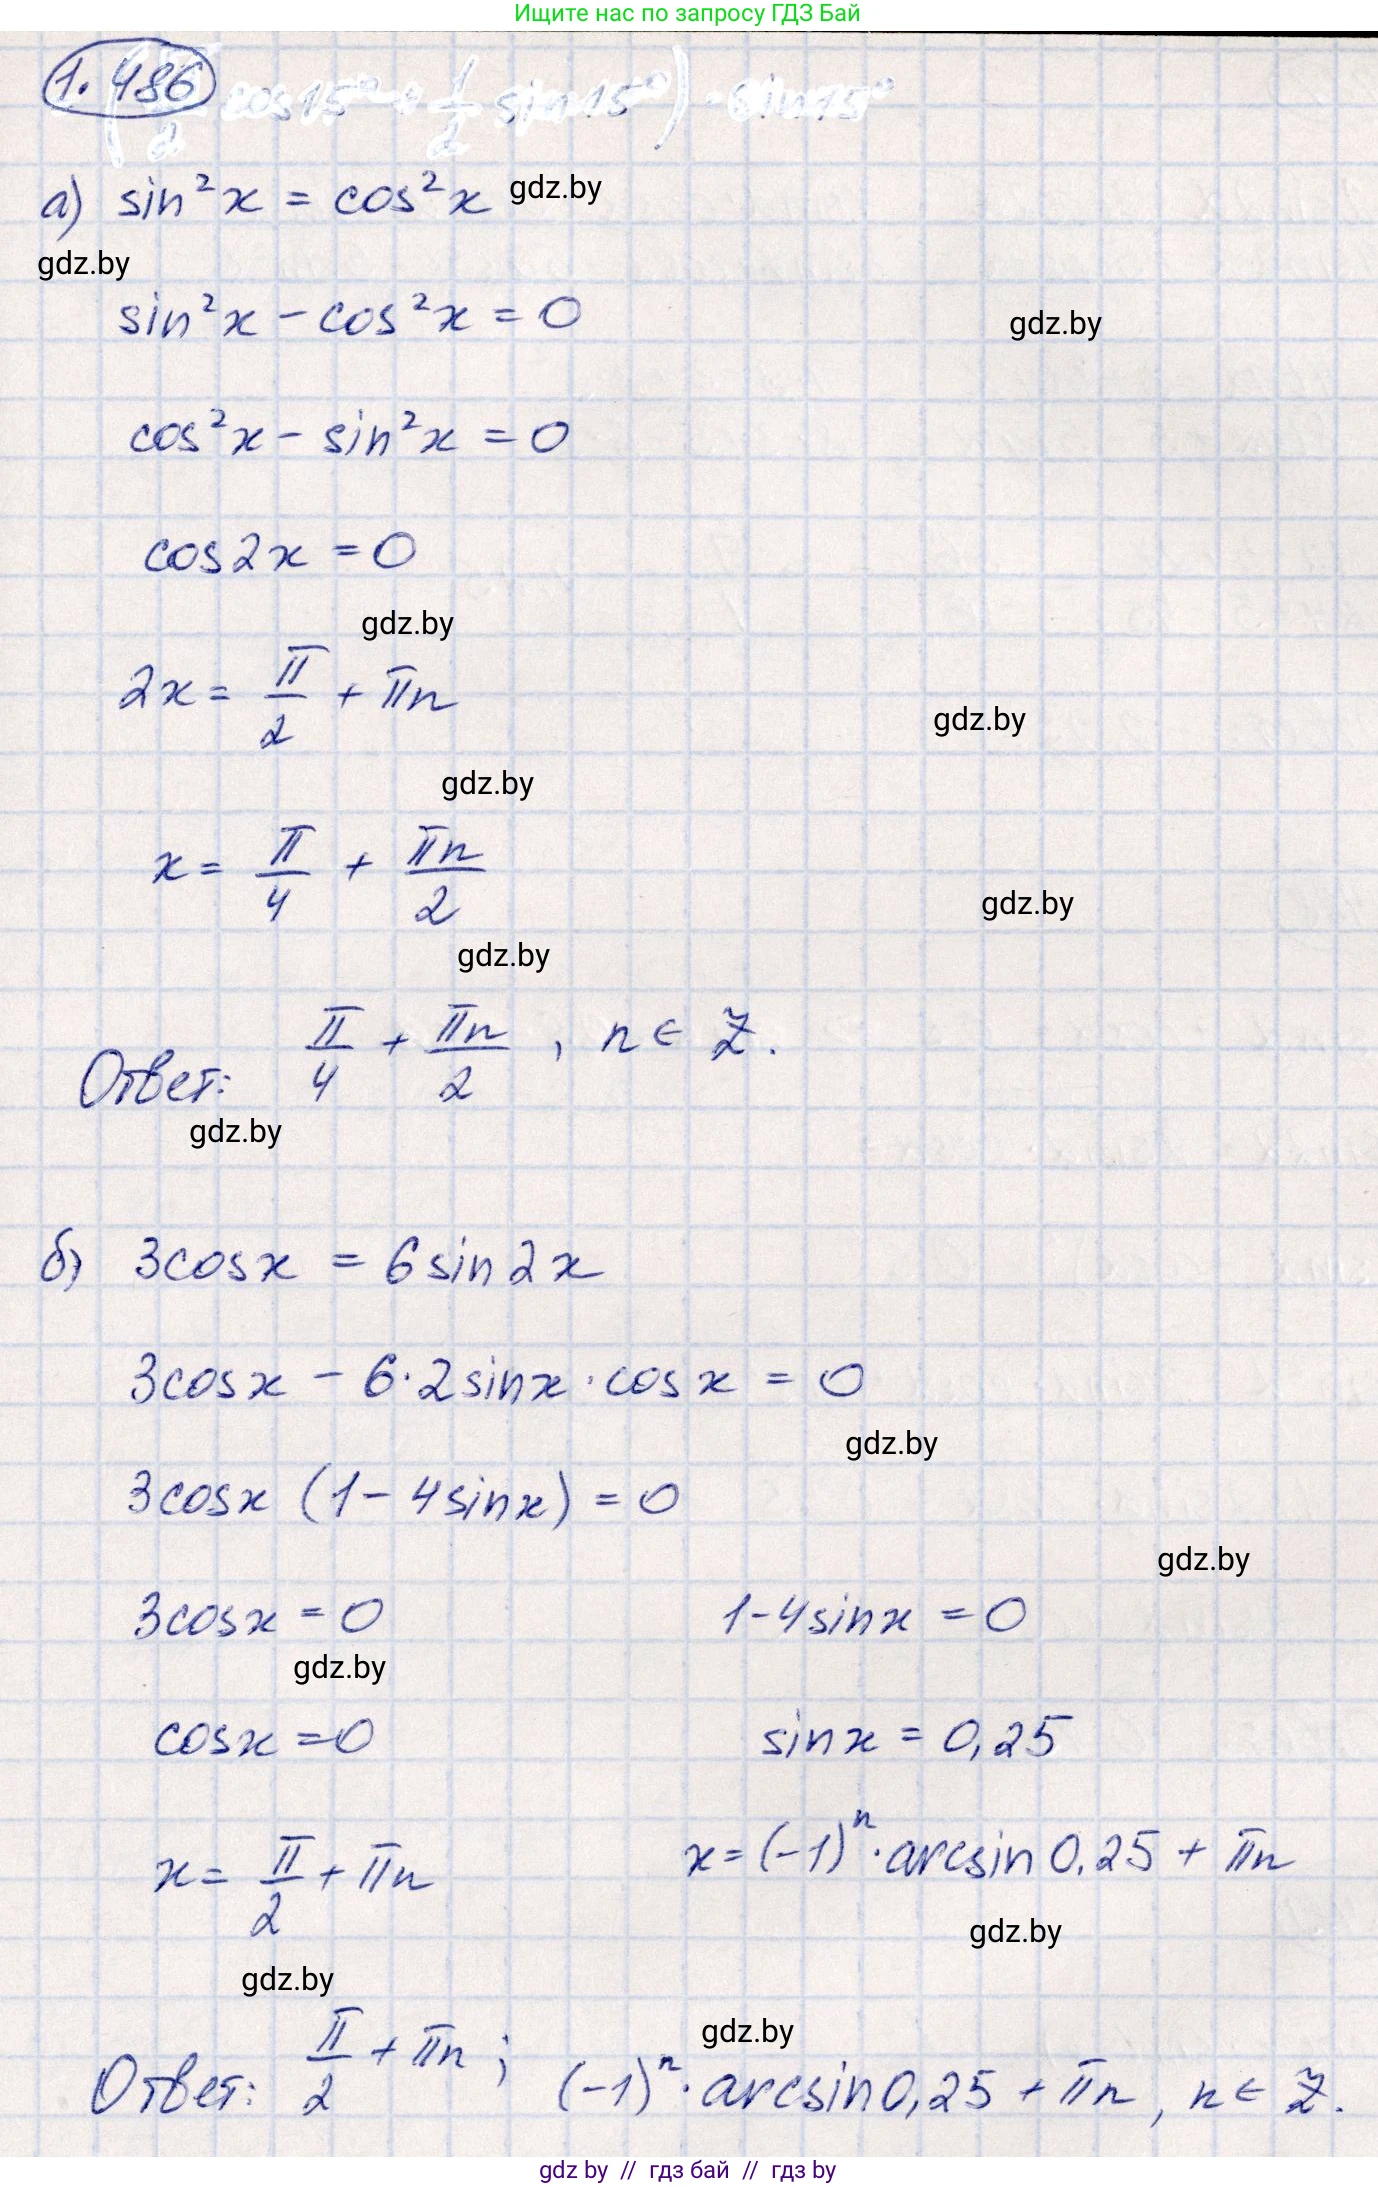 Ищите нас по запросу ГДЗ Бай
1.486
cos15° + 1/2 sin15°) · sin15°
а) sin²x = cos²x gdz.by
gdz.by
sin²x - cos²x = 0
gdz.by
cos²x - sin²x = 0
cos2x = 0
gdz.by
2x = π/2 + πn
gdz.by
gdz.by
x = π/4 + πn/2
gdz.by
gdz.by
Ответ: π/4 + πn/2 , n ∈ Z.
gdz.by
б) 3cosx = 6sin2x
3cosx - 6·2sinx·cosx = 0
gdz.by
3cosx (1 - 4sinx) = 0
gdz.by
3cosx = 0 1-4sinx = 0
gdz.by
cosx = 0 sinx = 0,25
x = π/2 + πn x = (-1)ⁿ·arcsin0,25 + πn
gdz.by
gdz.by
gdz.by
Ответ: π/2 + πn ; (-1)ⁿ·arcsin0,25 + πn , n ∈ Z.
gdz by // гдз бай // гдз by